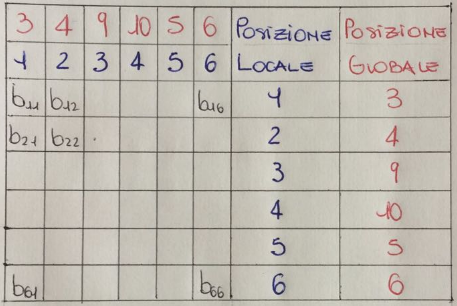 3 4 9 10 5 6 POSIZIONE POSIZIONE
1 2 3 4 5 6 LOCALE GLOBALE
b11 b12 b16 1 3
b21 b22 . 2 4
3 9
4 10
5 5
b61 b66 6 6